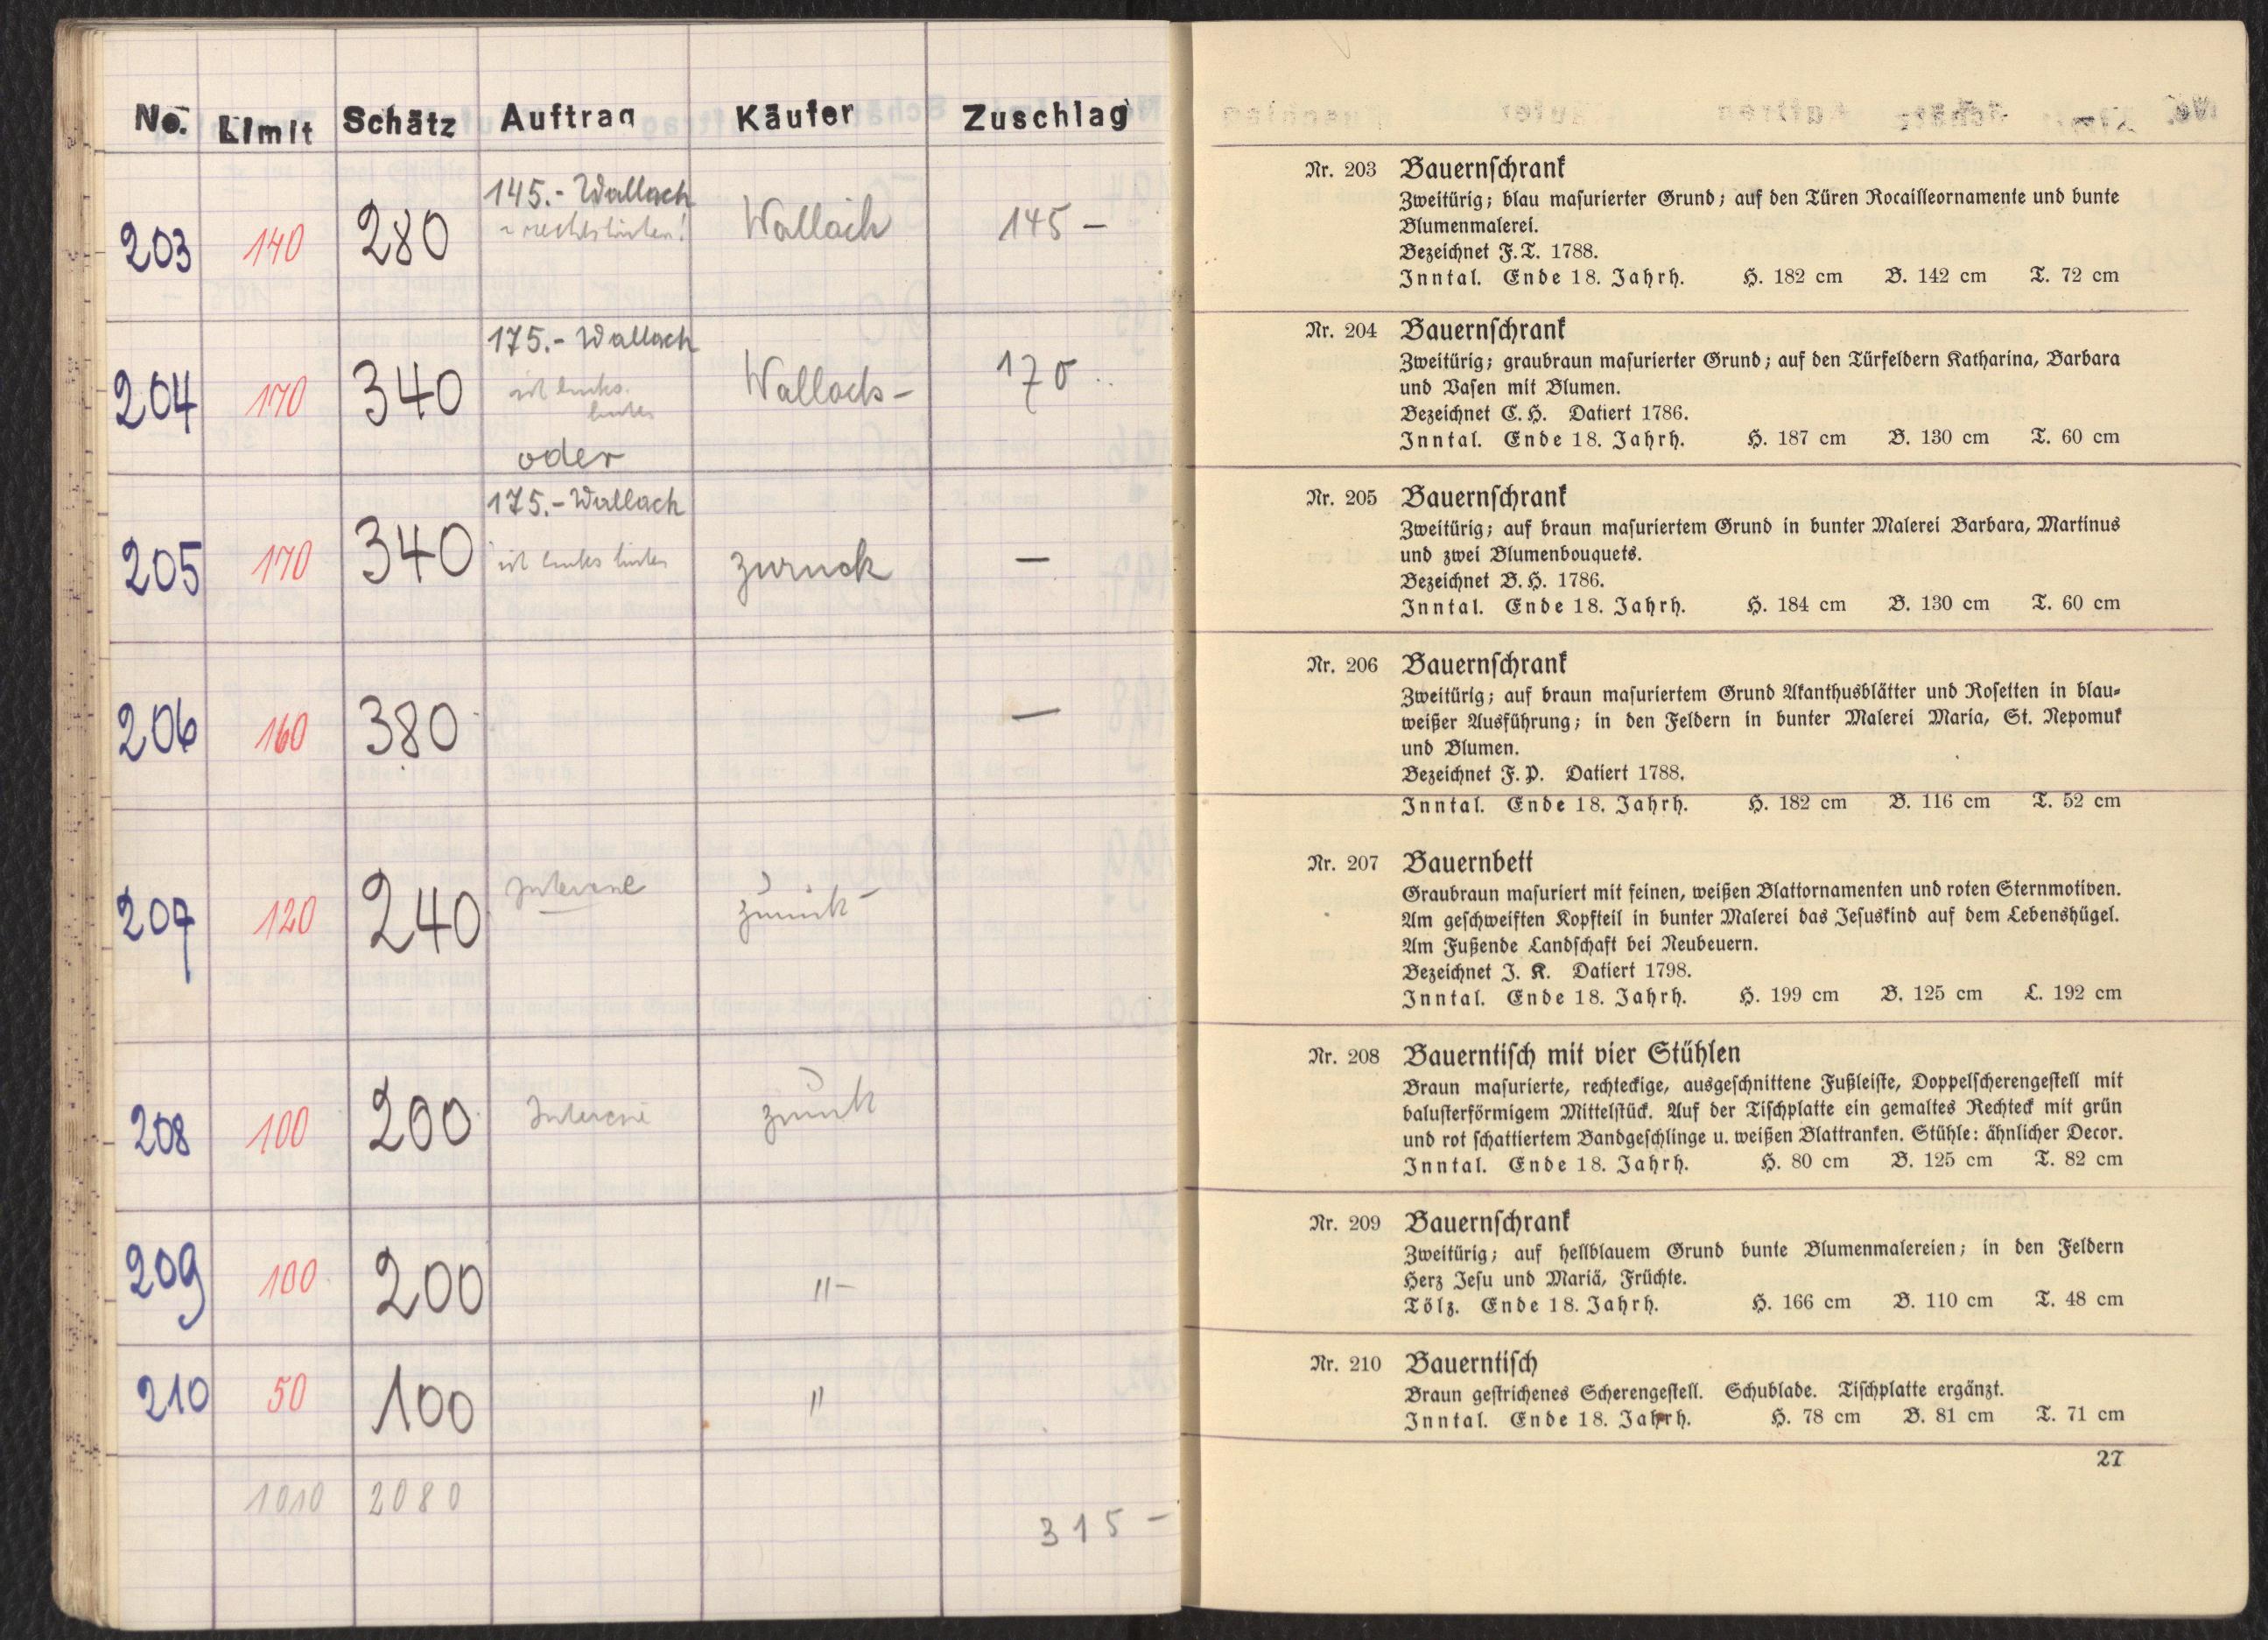 No. Limit Schätz Auftrag Käufer Zuschlag
145.- Wallach
203 140 280 rechts hinten! Wallach 145 -
175.- Wallach
204 170 340 links Wallach - 170
oder
175.- Wallach
205 170 340 links hinten zurück -
206 160 380 -
207 120 240 Interene zurück -
208 100 200 zurück
209 100 200 " -
210 50 100 "
1010 2080
315 -
Nr. 203 Bauernſchrank
Zweitürig; blau maſurierter Grund; auf den Türen Rocailleornamente und bunte
Blumenmalerei.
Bezeichnet F. T. 1788.
Inntal. Ende 18. Jahrh. H. 182 cm B. 142 cm T. 72 cm
Nr. 204 Bauernſchrank
Zweitürig; graubraun maſurierter Grund; auf den Türfeldern Katharina, Barbara
und Vaſen mit Blumen.
Bezeichnet C. H. Datiert 1786.
Inntal. Ende 18. Jahrh. H. 187 cm B. 130 cm T. 60 cm
Nr. 205 Bauernſchrank
Zweitürig; auf braun maſuriertem Grund in bunter Malerei Barbara, Martinus
und zwei Blumenbouquets.
Bezeichnet B. H. 1786.
Inntal. Ende 18. Jahrh. H. 184 cm B. 130 cm T. 60 cm
Nr. 206 Bauernſchrank
Zweitürig; auf braun maſuriertem Grund Akanthusblätter und Roſetten in blau-
weißer Ausführung; in den Feldern in bunter Malerei Maria, St. Nepomuk
und Blumen.
Bezeichnet F. P. Datiert 1788.
Inntal. Ende 18. Jahrh. H. 182 cm B. 116 cm T. 52 cm
Nr. 207 Bauernbett
Graubraun maſuriert mit feinen, weißen Blattornamenten und roten Sternmotiven.
Am geſchweiften Kopfteil in bunter Malerei das Jeſuskind auf dem Lebenshügel.
Am Fußende Landſchaft bei Neubeuern.
Bezeichnet J. K. Datiert 1798.
Inntal. Ende 18. Jahrh. H. 199 cm B. 125 cm L. 192 cm
Nr. 208 Bauerntiſch mit vier Stühlen
Braun maſurierte, rechteckige, ausgeſchnittene Fußleiſte, Doppelſcherengeſtell mit
baluſterförmigem Mittelſtück. Auf der Tiſchplatte ein gemaltes Rechteck mit grün
und rot ſchattiertem Bandgeſchlinge u. weißen Blattranken. Stühle: ähnlicher Decor.
Inntal. Ende 18. Jahrh. H. 80 cm B. 125 cm T. 82 cm
Nr. 209 Bauernſchrank
Zweitürig; auf hellblauem Grund bunte Blumenmalereien; in den Feldern
Herz Jeſu und Mariä, Früchte.
Tölz. Ende 18. Jahrh. H. 166 cm B. 110 cm T. 48 cm
Nr. 210 Bauerntiſch
Braun geſtrichenes Scherengeſtell. Schublade. Tiſchplatte ergänzt.
Inntal. Ende 18. Jahrh. H. 78 cm B. 81 cm T. 71 cm
27